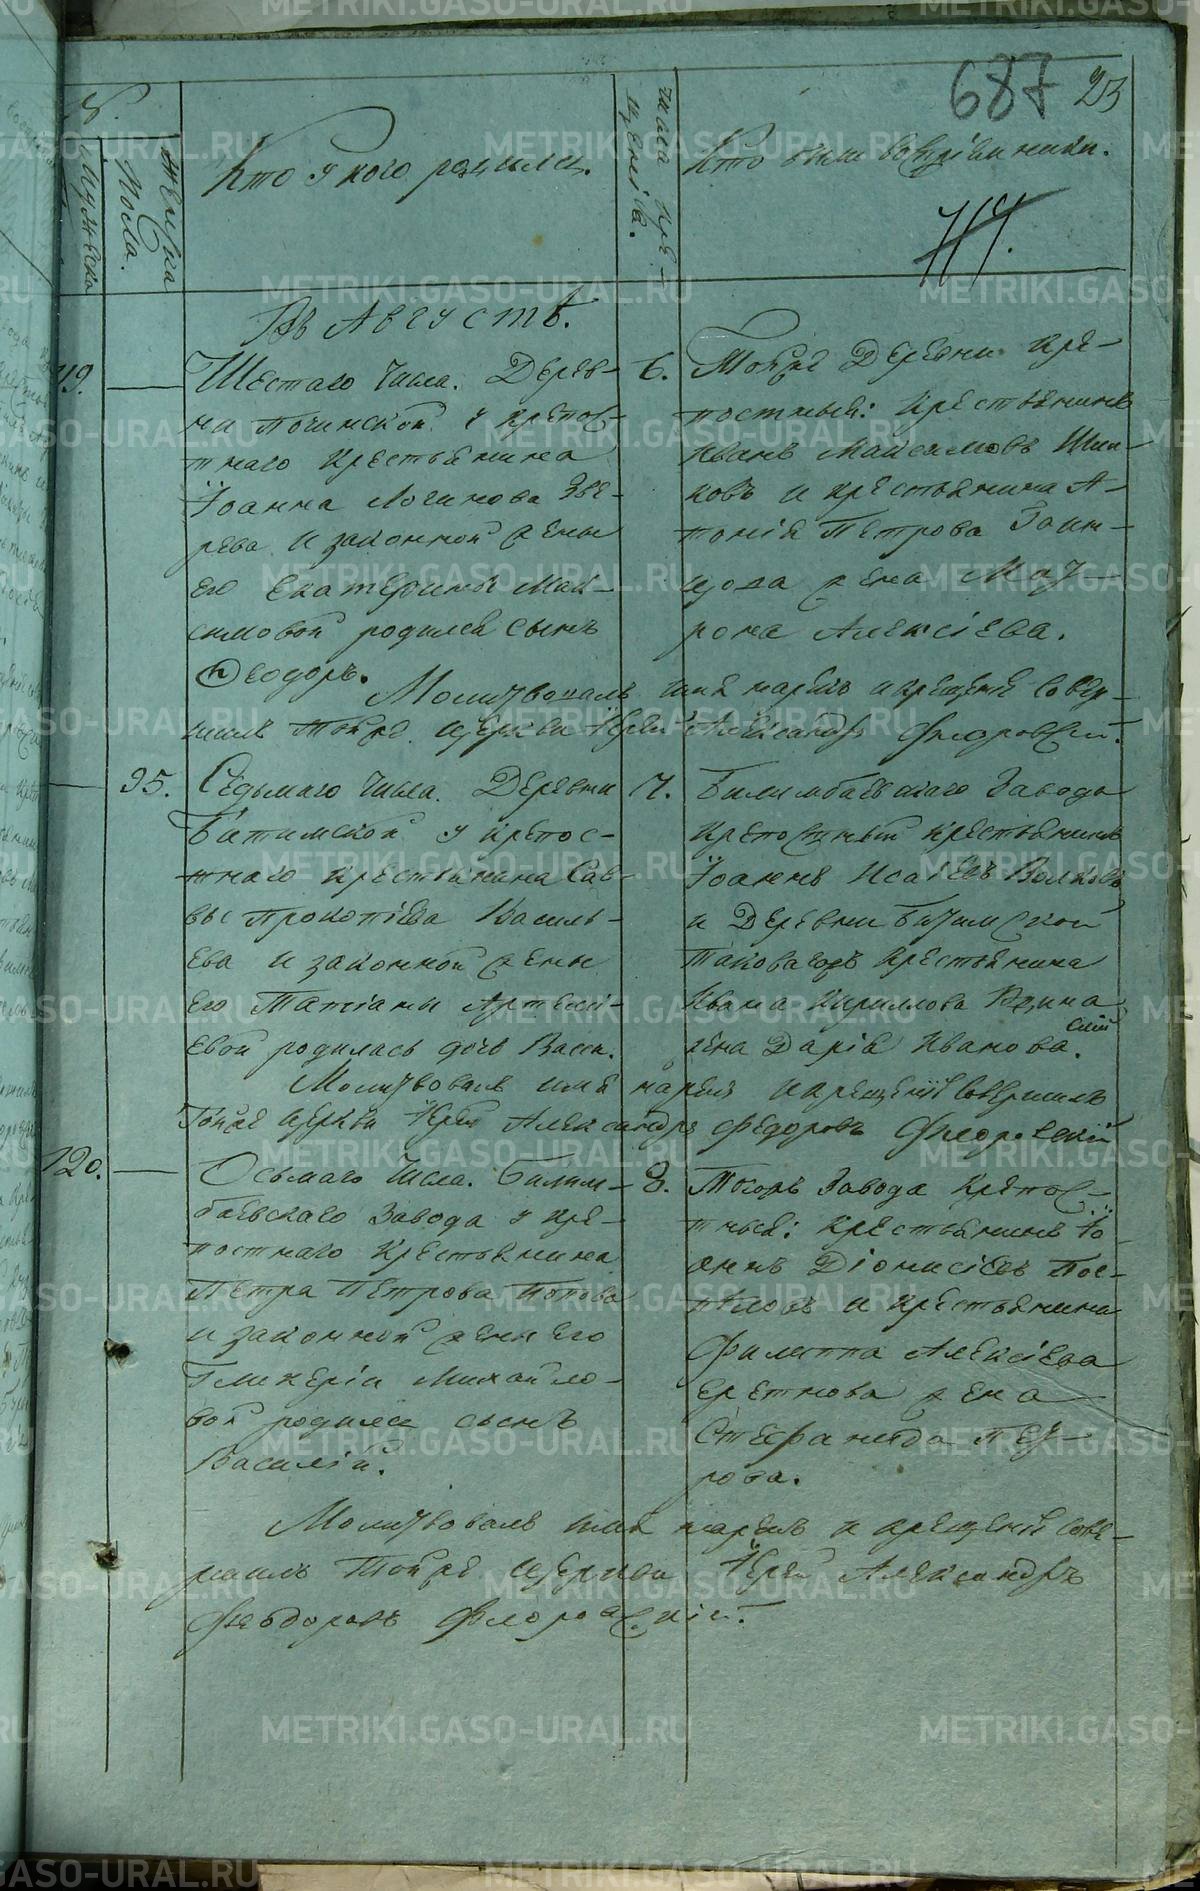 687 23
№
Мужска
Пола.
Женска
Кто у кого родился.
числа кре-
щенія.
Кто были воспріемники.
Въ Августѣ.
119.
Шестаго числа. Дерев-
ни Починской у крепос-
тнаго крестьянина
Іоанна Логинова Зве-
рева и законной жены
его Екатерины Мак-
симовой родился сынъ
Ѳеодоръ.
6.
Тойже Деревни кре-
постные: крестьянинъ
Иванъ Максимовъ
и крестьянина А-
тонія Петрова
жена Мат-
рона Алексіева.
Молитвовалъ имя нарекъ и крещеніе совер-
шилъ тойже церкви Іерей Александръ Флоровскій.
95.
Седьмаго числа. Деревни
Битимской у крепос-
тнаго крестьянина Сав-
вы Прокопіева Василь-
ева и законной жены
его Татіаны Артемі-
евой родилась дочь Васса.
7.
Билимбаевскаго Завода
крепостный крестьянинъ
Іоаннъ Исаіевъ Волковъ
и Деревни Битимской
таковагожъ крестьянина
Ивана Кириллова
жена Дарія Иванова.
Молитвовалъ имя нарекъ и крещеніе совершилъ
Тойже церкви Іерей Александръ Федоровъ Флоровскій
120.
Осьмаго числа. Билим-
баевскаго Завода у кре-
постнаго крестьянина
Петра Петрова Попова
и законной жены его
Гликеріи Михайло-
вой родился сынъ
Василій.
8.
Тогожъ Завода крепос-
тные: крестьянинъ Іо-
аннъ Діонисіевъ Пос-
пѣловъ и крестьянина
Филиппа Алексіева
жена
Стефанида Пет-
рова.
Молитвовалъ имя нарекъ и крещеніе сове-
ршилъ Тойже церкви Іерей Александръ
Феодоровъ Флоровскій.
METRIKI.GASO-URAL.RU